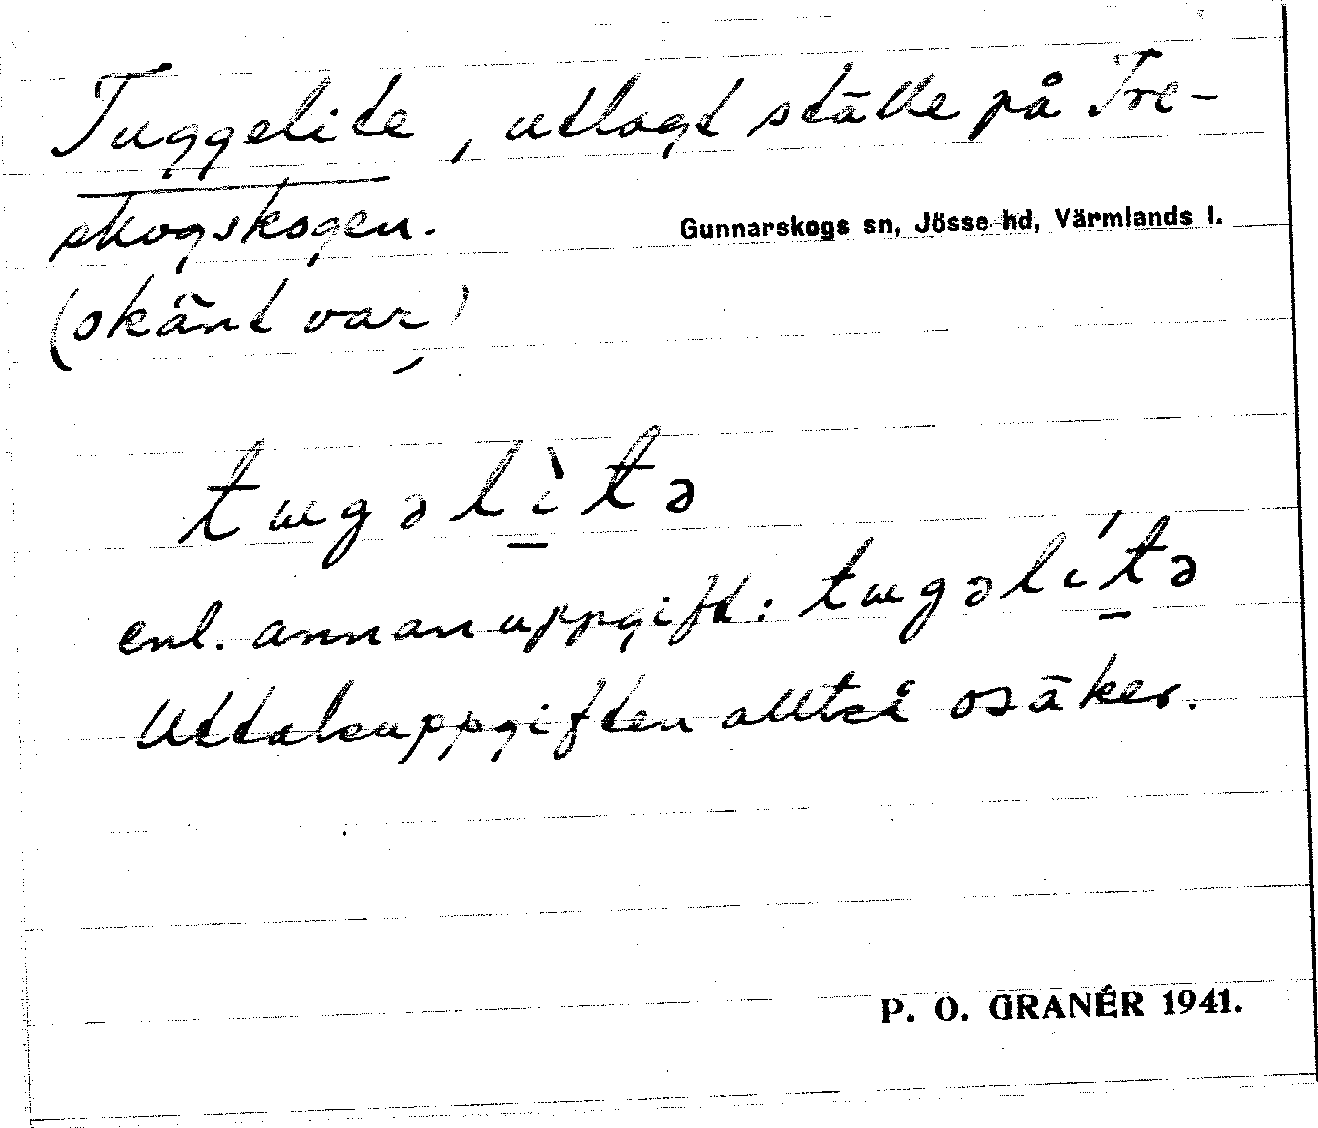 Tuggelite, utlagt ställe på Tre-
skogskogen.
Gunnarskogs sn, Jösse hd, Värmlands l.
(okänt var)
tɯgəlìtə
enl. annan uppgift: tɯgəlítə
Uttalsuppgiften alltså osäker.
P. O. GRANÉR 1941.